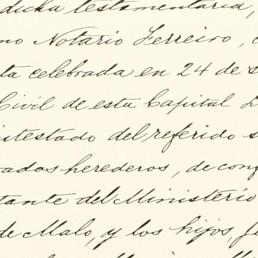 dicha testamentaria,
no Notario Ferreiro,
ta celebrada en 24 de s
Civil de esta Capital
intestado del referido s
rados herederos, de conf
tante del Ministerio
de Malo, y los hijos